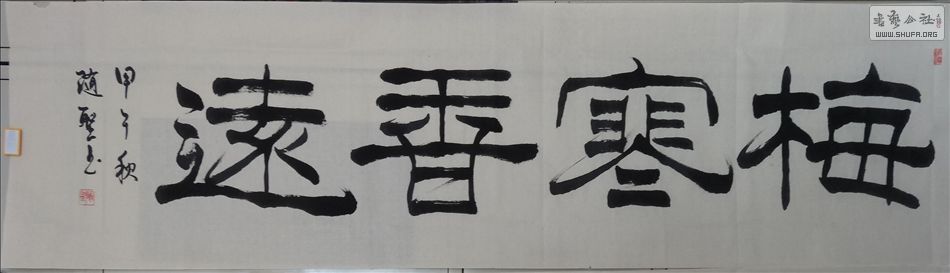 梅寒香遠
甲午秋
随
書藝公社
WWW.SHUFA.ORG